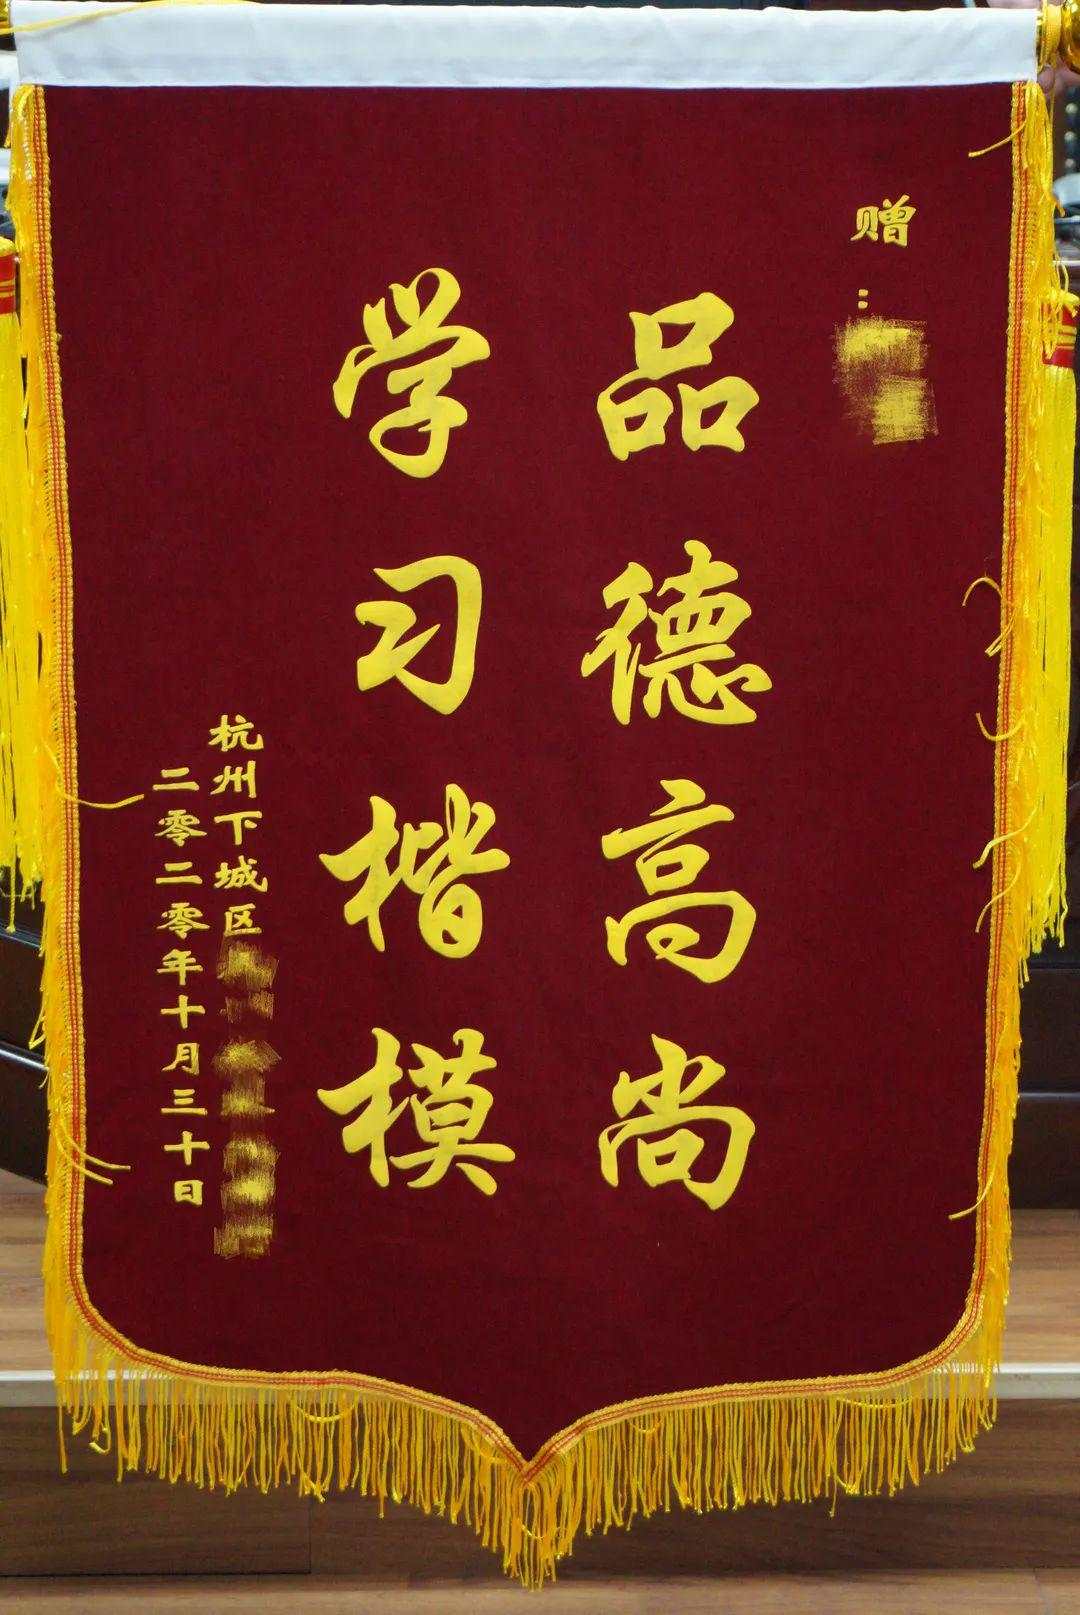 赠：
品德高尚
学习楷模
杭州下城区
二零二零年十月三十日